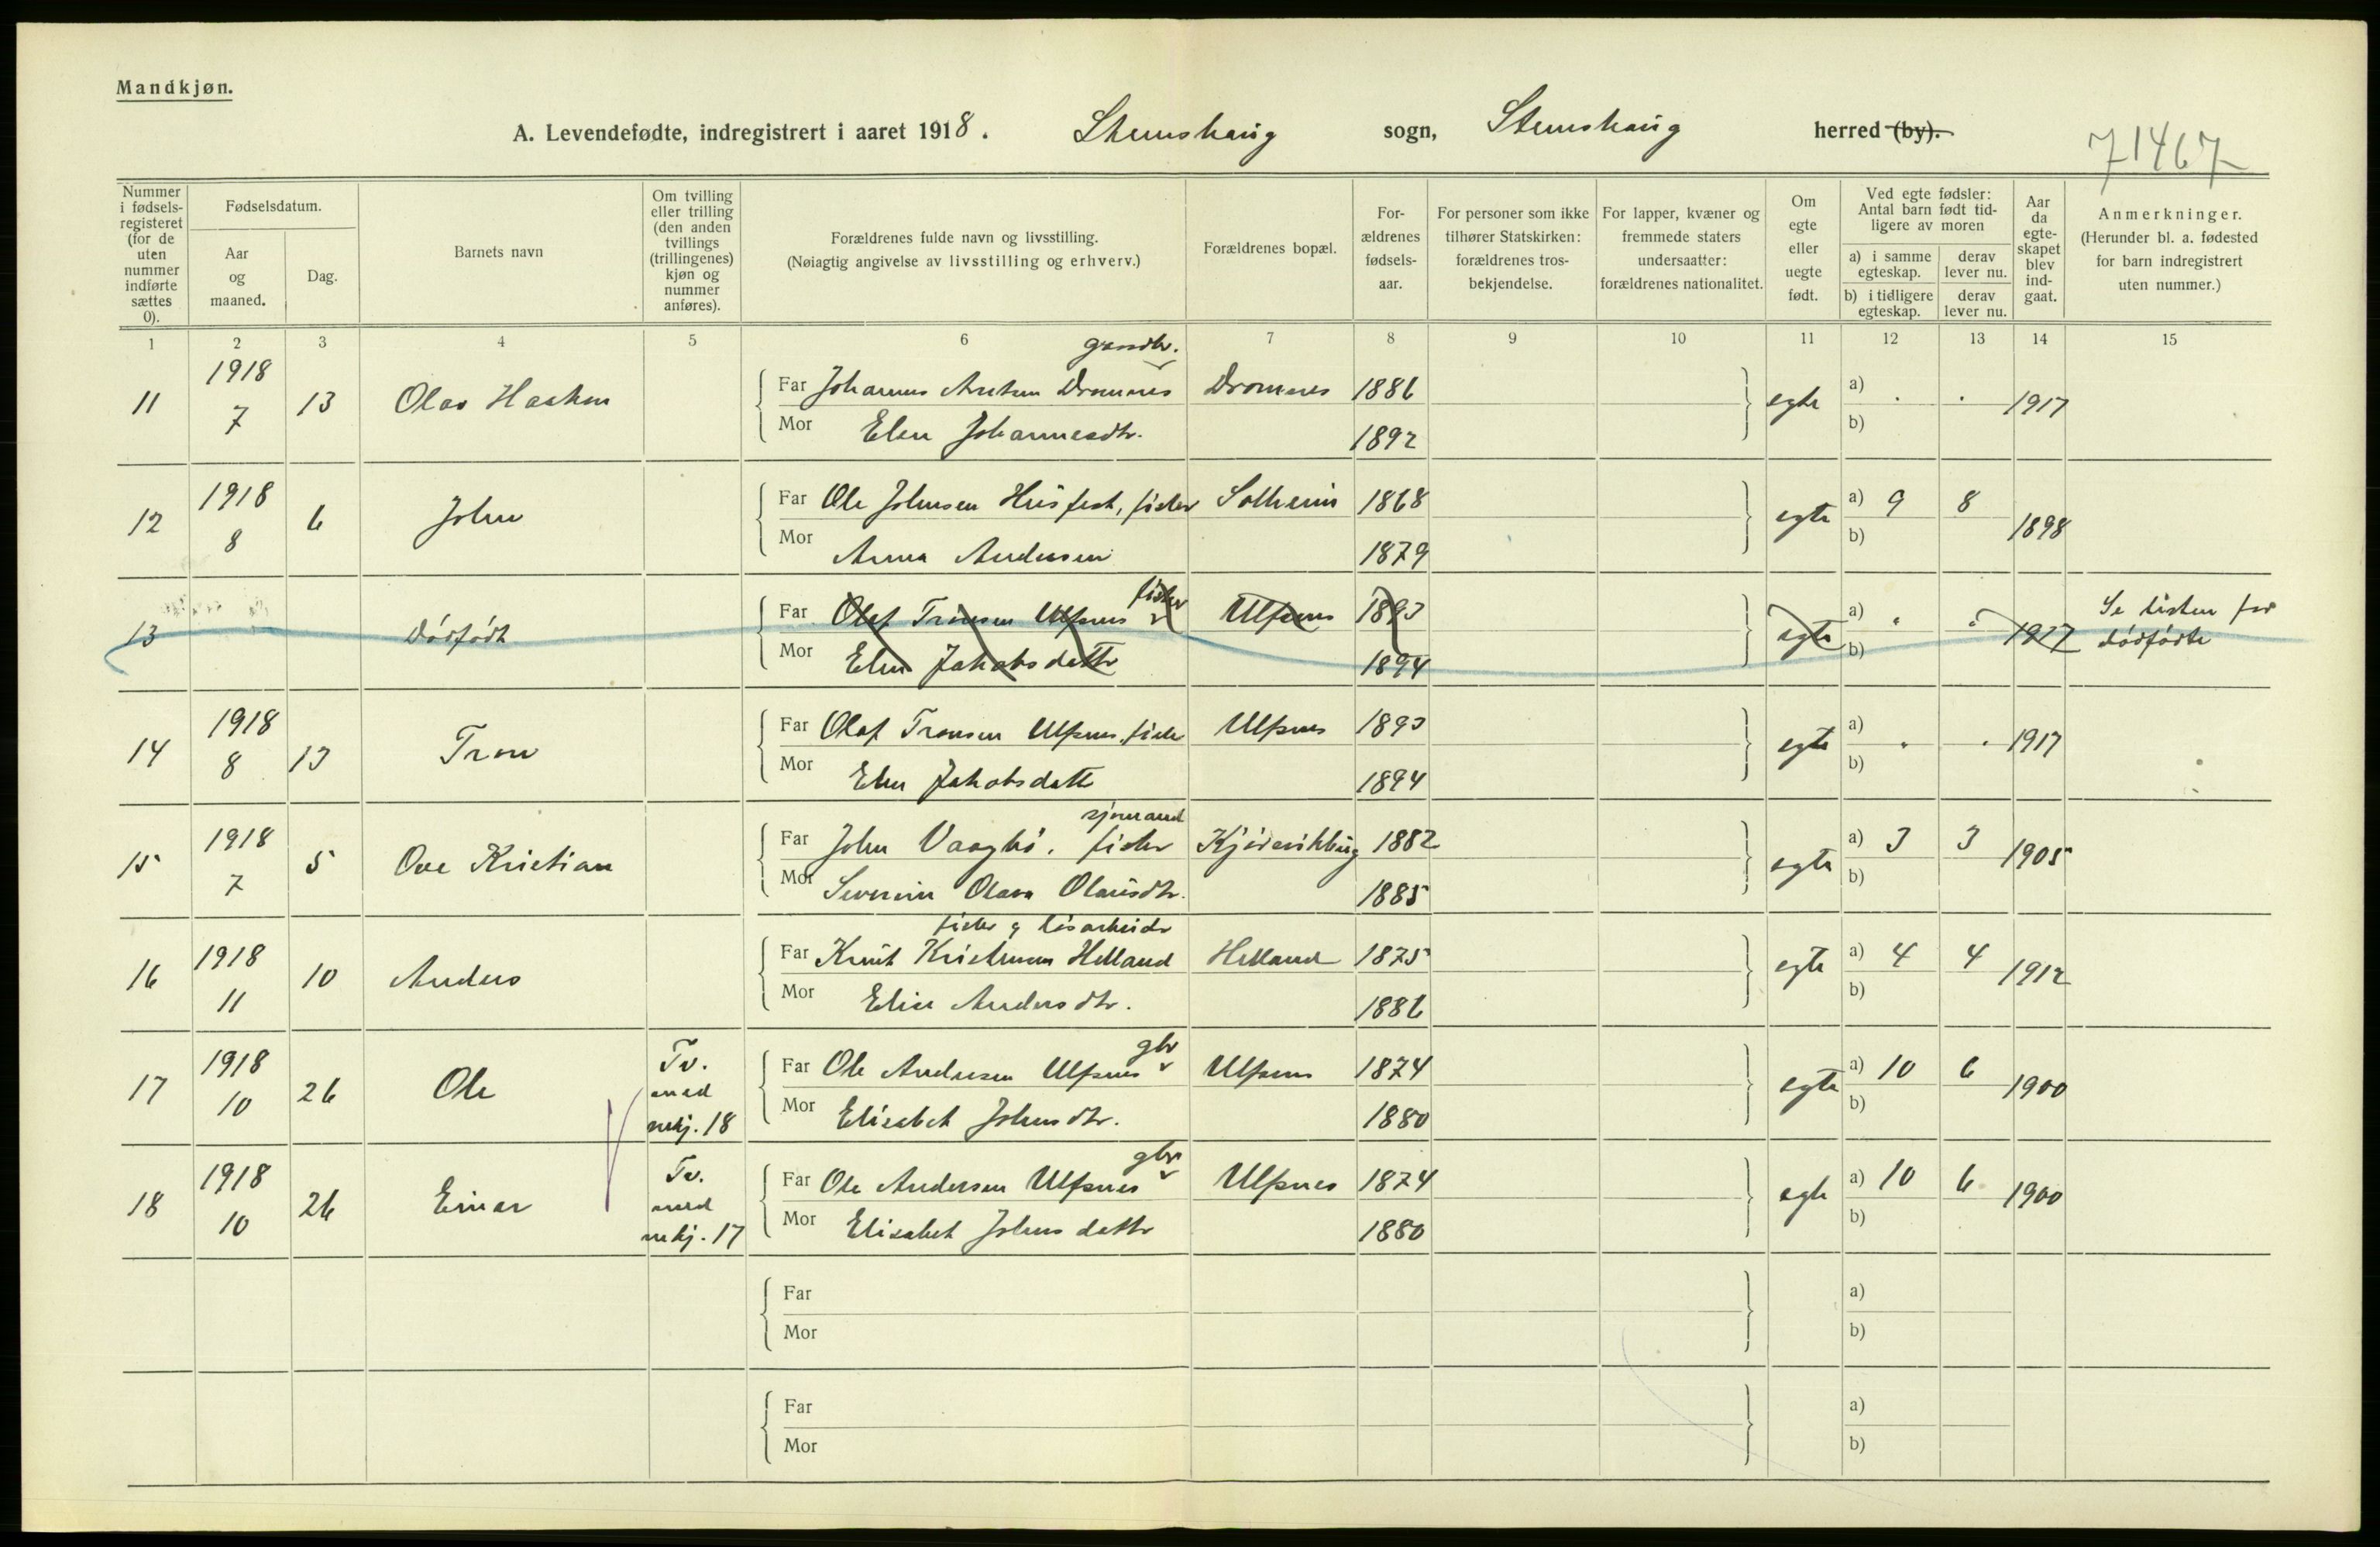 Mandkjøn.
A. Levendefødte, indregistrert i aaret 1918. Stemshaug sogn, Stemshaug herred (by).
71467
Nummer i fødsels-registeret (for de uten nummer indførte sættes 0).
Fødselsdatum.
Aar og maaned.
Dag.
Barnets navn
Om tvilling eller trilling (den anden tvillings (trillingenes) kjøn og nummer anføres).
Forældrenes fulde navn og livsstilling.
(Nøiagtig angivelse av livsstilling og erhverv.)
Forældrenes bopæl.
For-ældrenes fødsels-aar.
For personer som ikke tilhører Statskirken: forældrenes tros-bekjendelse.
For lapper, kvæner og fremmede staters undersaatter: forældrenes nationalitet.
Om egte eller uegte født.
Ved egte fødsler: Antal barn født tid-ligere av moren
a) i samme egteskap.
derav lever nu.
b) i tidligere egteskap.
derav lever nu.
Aar da egte-skapet blev ind-gaat.
Anmerkninger.
(Herunder bl. a. fødested for barn indregistrert uten nummer.)
1 2 3 4 5 6 7 8 9 10 11 12 13 14 15
gaardbr.
11 1918 7 13 Olav Haakon Far Johannes Dromnes Dromnes 1886 egte a) . . 1917
Mor Elen Johannesdtr. 1892 b)
12 1918 8 6 John Far Ole Johnsen Husfest, fisker Solheim 1868 egte a) 9 8 1898
Mor Anna Andersen 1879 b)
fisker
13 Dødfødt Far Olaf Tronsen Ulfsnes Ulfsnes 1893 egte a) . . 1917 Se listen for
Mor Elen Jakobsdattr 1894 b) dødfødte
14 1918 8 13 Tron Far Olaf Tronsen Ulfsnes. fisker Ulfsnes 1893 egte a) . . 1917
Mor Elen Jakobsdattr 1894 b)
sjømand
15 1918 7 5 Ove Kristian Far John Vaagbø. fisker 1882 egte a) 3 3 1905
Mor Severin Olava Olausdtr. 1885 b)
fisker og løsarbeidr
16 1918 11 10 Anders Far Knut Kristensen Helland Helland 1875 egte a) 4 4 1912
Mor Elise Andersdtr. 1886 b)
gbr
17 1918 10 26 Ole Tv. med mkj. 18 Far Ole Andersen Ulfsnes Ulfsnes 1874 egte a) 10 6 1900
Mor Elisabet Johnsdtr. 1880 b)
gbr
18 1918 10 26 Einar Tv. med mkj. 17 Far Ole Andersen Ulfsnes Ulfsnes 1874 egte a) 10 6 1900
Mor Elisabet Johnsdattr 1880 b)
Far a)
Mor b)
Far a)
Mor b)